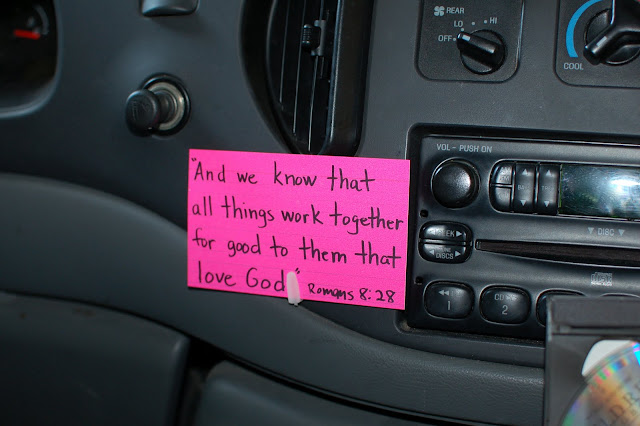 REAR
LO
HI
OFF
COOL
VOL - PUSH ON
"And we know that
all things work together
for good to them that
love God"
Romans 8:28
DISC
DISCS
1
CD
2